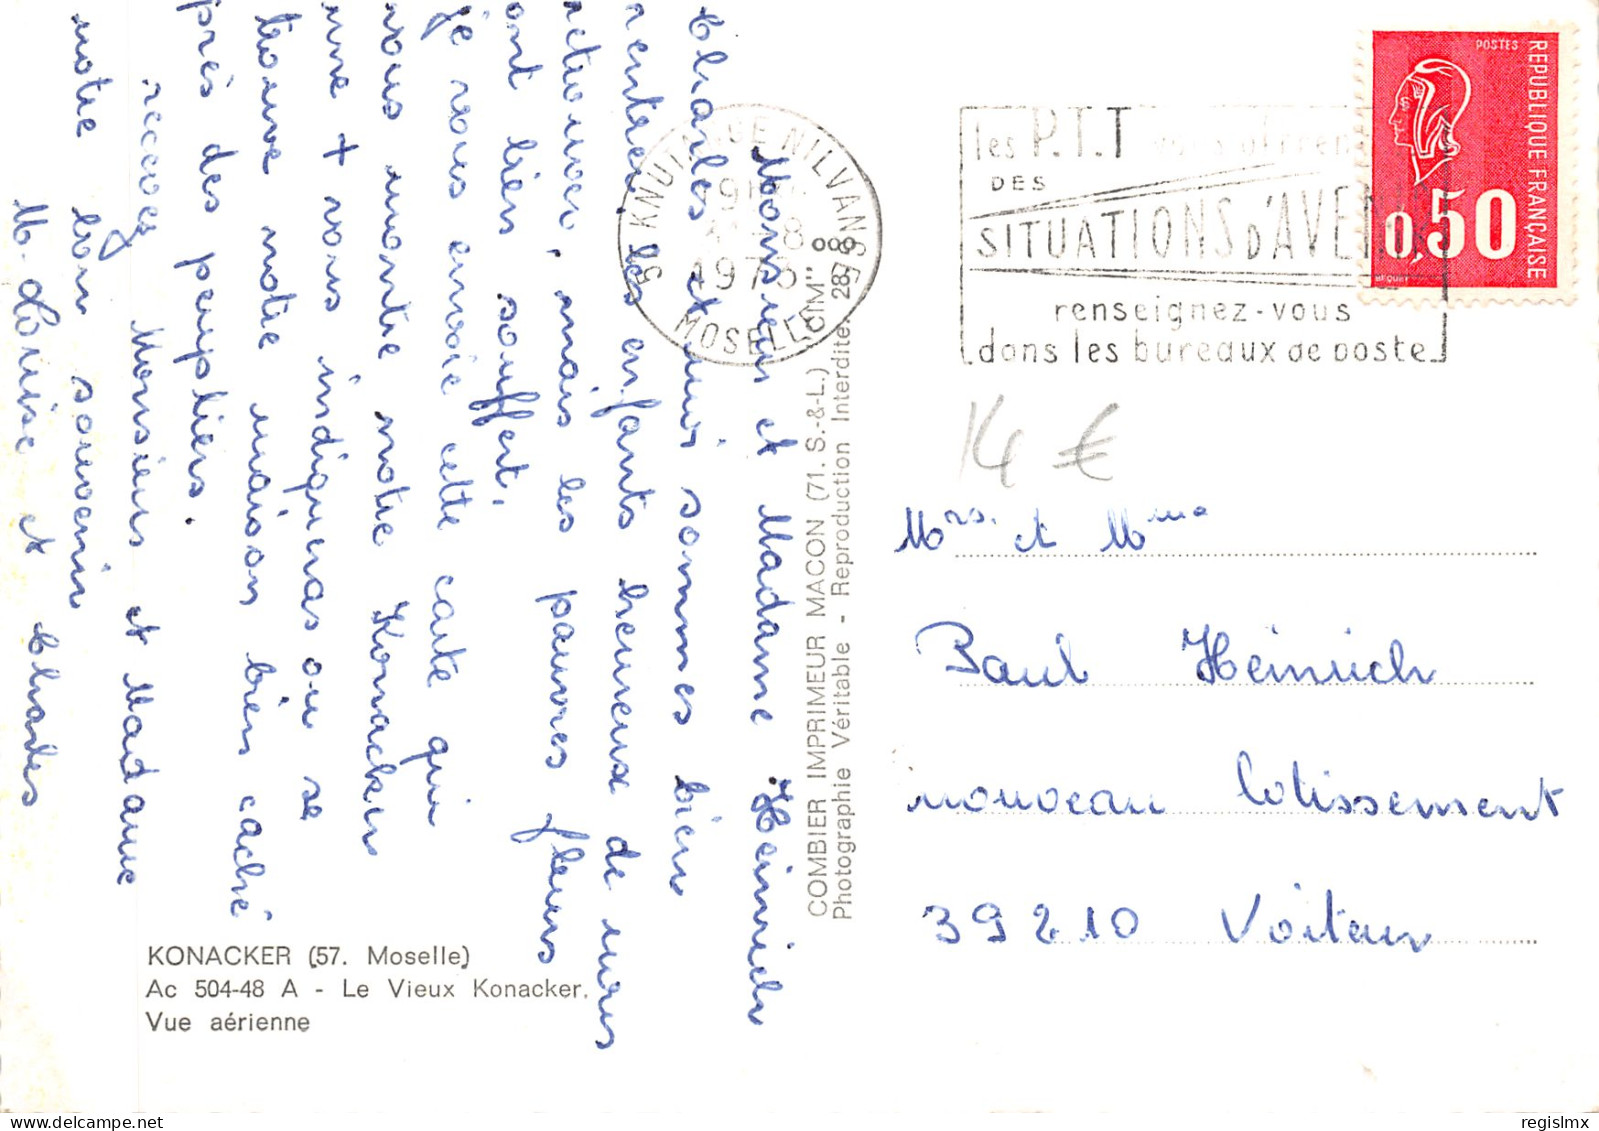 Monsieur et Madame Heinrich
Charles et moi sommes bien
rentrés les enfants heureux de nous
retrouver, mais les pauvres fleurs
ont bien souffert.
je vous envoie cette carte qui
vous montre notre Konacker
une + vous indiquera où se
trouve notre maison bien caché
près des peupliers.
recevez Monsieur et Madame
notre bon souvenir
M. Louise et Charles
KONACKER (57. Moselle)
Ac 504-48 A - Le Vieux Konacker.
Vue aérienne
COMBIER IMPRIMEUR MACON (71. S.-&-L.) "CIM"
Photographie Véritable - Reproduction Interdite
57 KNUTANGE NILVANGE
1975
MOSELLE
les P.T.T vous offrent
DES
SITUATIONS D'AVENIR
renseignez-vous
dans les bureaux de poste
POSTES
REPUBLIQUE FRANÇAISE
0,50
BEQUET
14 €
Mrs. et Mme
Paul Heinrich
nouveau lotissement
39210 Voiteur
delcampe.net
regislmx